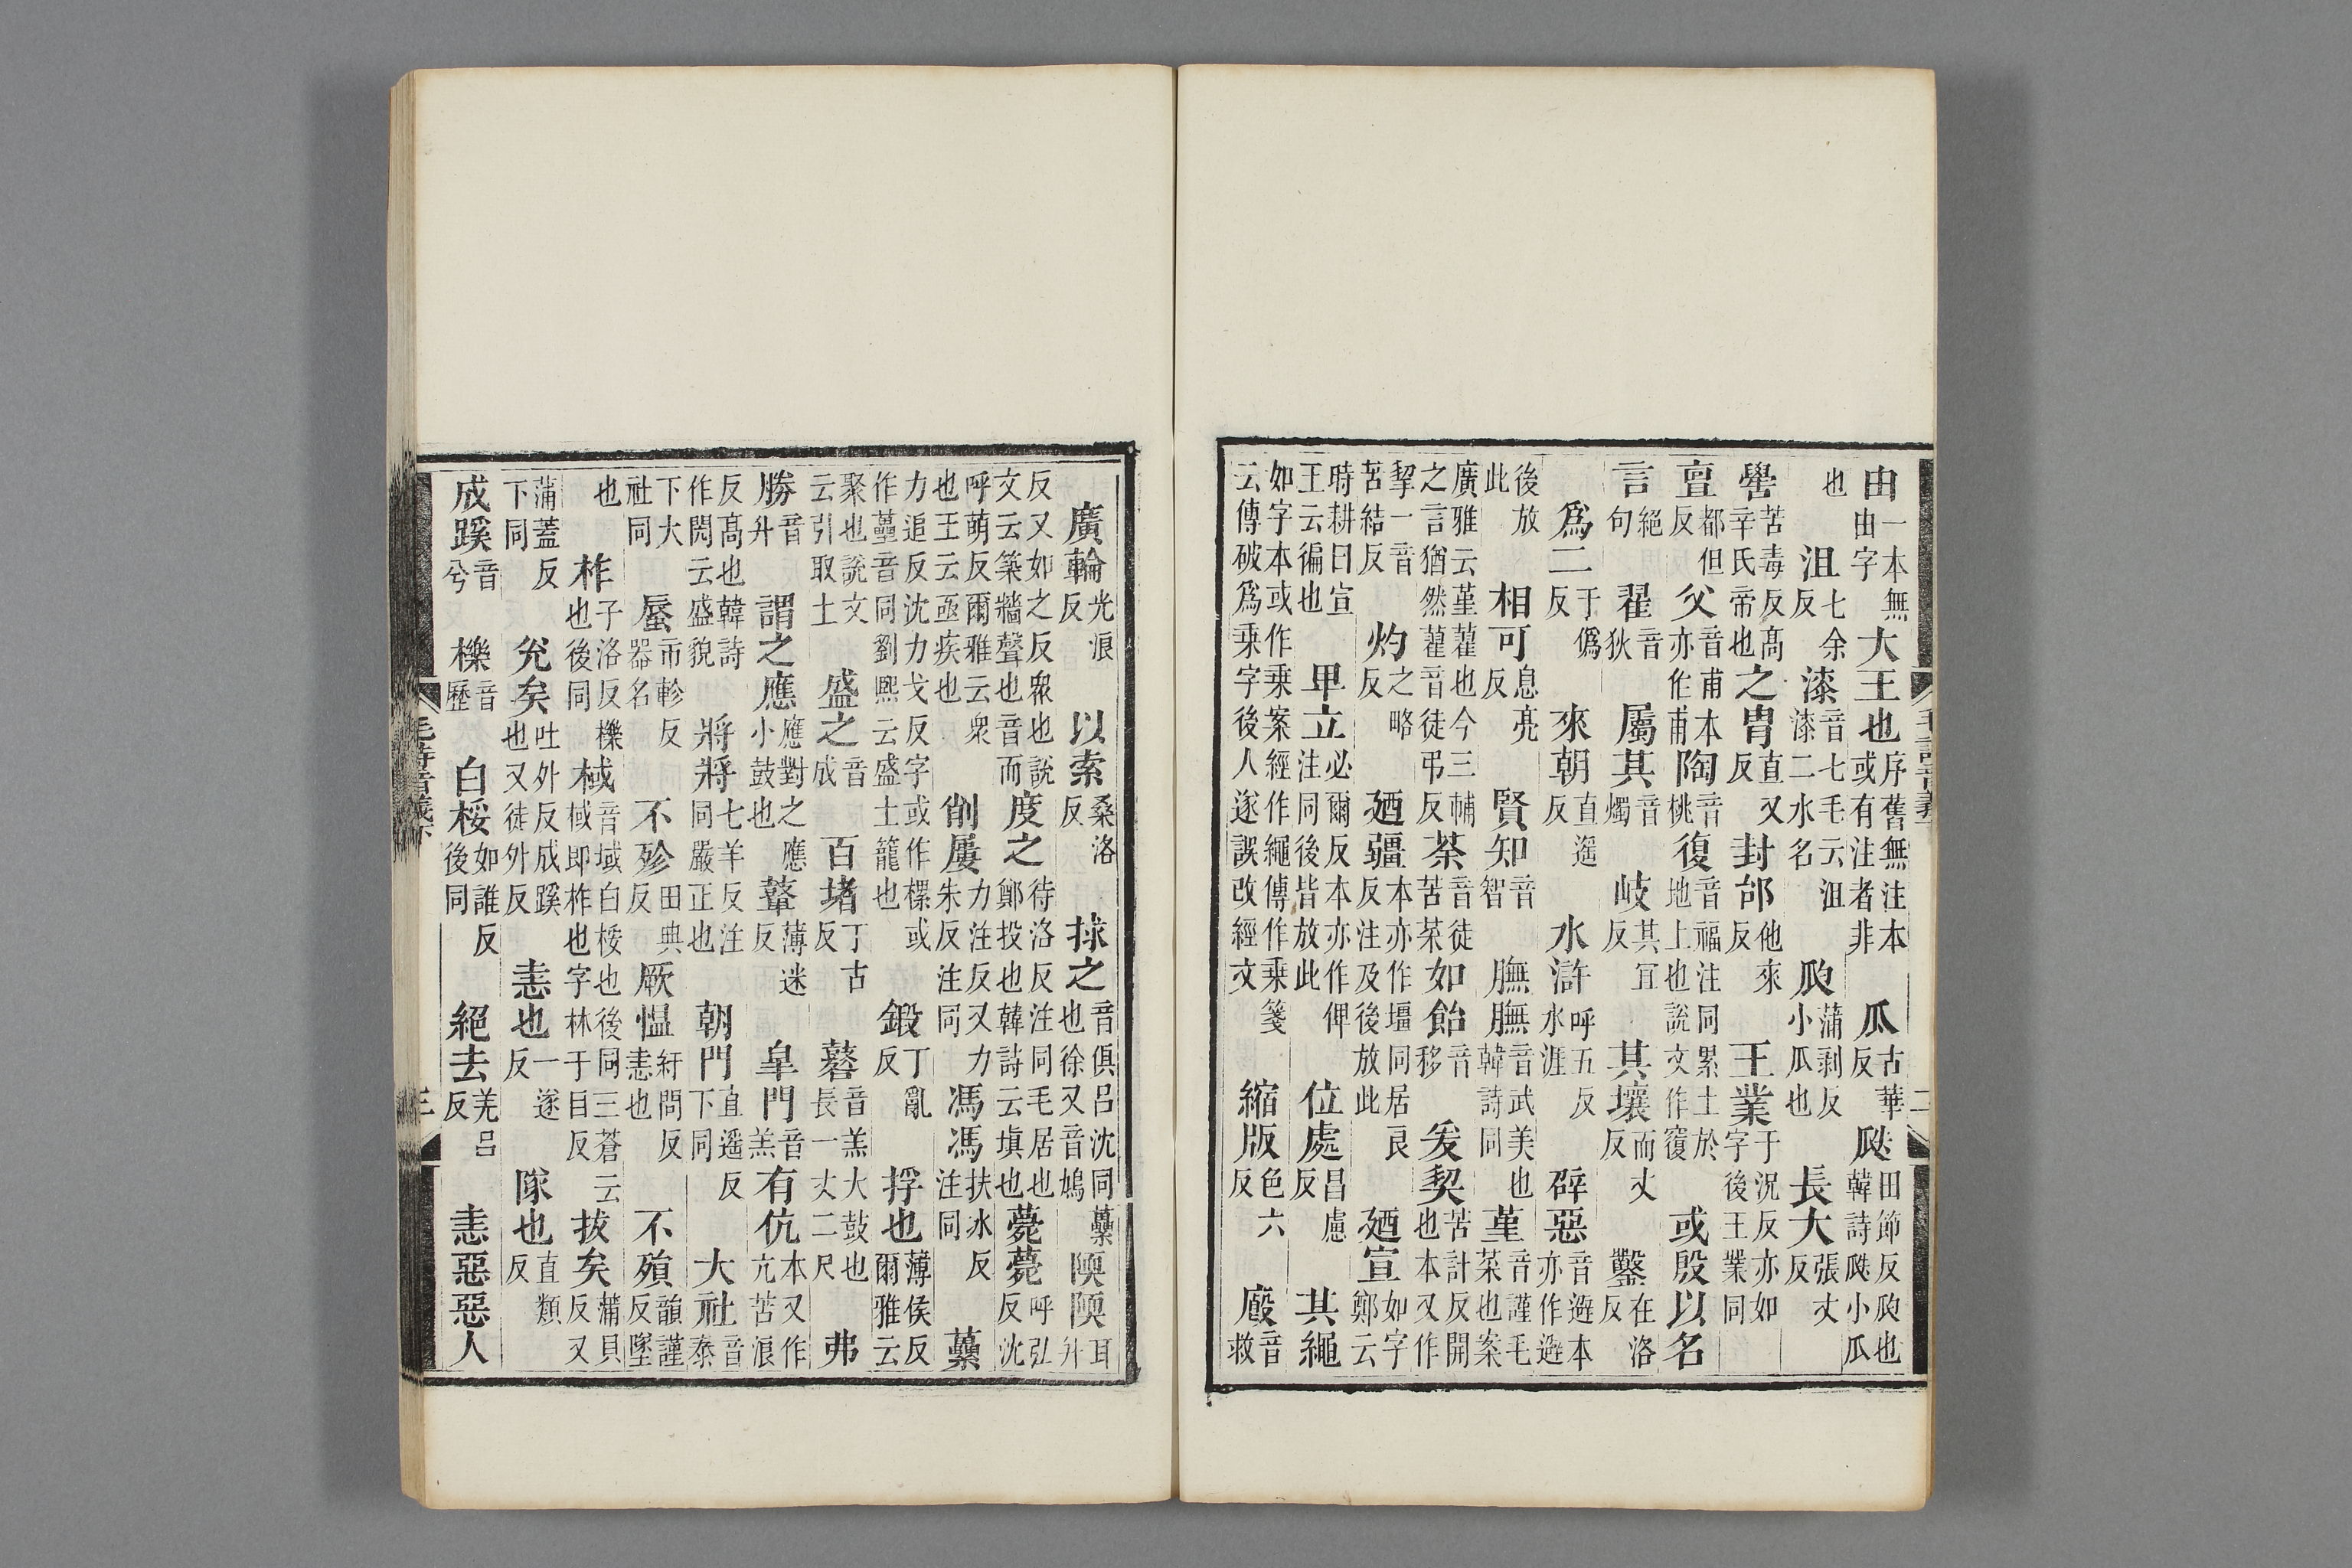 由一本無由字大王也序舊無注本或有注者非瓜古華反瓞田節反瓝也韓詩瓞小瓜
也沮七余反漆音七毛云沮漆二水名瓝蒲剥反小瓜也長大張丈反
嚳苦毒反高辛氏帝也之胄直又反封邰他來反王業于況反亦如字後王業同
亶都但反父音甫本亦作甫陶音桃復音福注同累土於地上也説文作覆或殷以名
言絕句翟音狄屬其音燭岐其宜反其壤而丈反鑿在洛反
爲二于僞反來朝直遥反水滸呼五反水涯辟惡音避本亦作避
後放此相可息亮反賢知音智膴膴音武美也韓詩同堇音謹毛菜也案
廣雅云堇藋也今三輔之言猶然藋音徒弔反荼音徒苦菜如飴音移爰契苦計反開也本又作
挈一音苦結反灼之略反廼疆本亦作壃同居良反注及後放此廼宣如字鄭云
時耕曰宣王云徧也甲立必爾反本亦作俾注同後皆放此位處昌慮反其繩
如字本或作乗案經作繩傳作乗箋云傳破爲乗字後人遂誤改經文縮版色六反廄音救
廣輪光浪反以索桑洛反捄之音俱呂沈同也徐又音鳩虆陾陾耳升
反又如之反衆也説文云築牆聲也音而度之待洛反注同毛居也鄭投也韓詩云塡也薨薨呼弘反沈
呼萌反爾雅云衆也王云亟疾也削屢力注反又力朱反注同馮馮扶冰反注同虆
力追反沈力戈反字或作樏或作虆音同劉熙云盛土籠也鍛丁亂反捊也薄侯反爾雅云
聚也説文云引取土盛之音成百堵丁古反鼛音羔大鼓也長一丈二尺弗
勝音升謂之應應對之應小鼓也鼙薄迷反皐門音羔有伉本又作亢苦浪
反高也韓詩作閌云盛貌將將七羊反注同嚴正也朝門直遥反下同大社音泰
下大社同蜃市軫反器名不殄田典反厥慍紆問反恚也不殞韻謹反墜
也柞子洛反櫟也後同棫音域白桵也棫即柞也字林于目反後同三蒼云拔矣蒲貝反又
蒲蓋反下同兊矣吐外反成蹊也又徒外反恚也一遂反隊也直類反
成蹊音兮櫟音歷白桵如誰反後同絕去羌呂反恚惡惡人